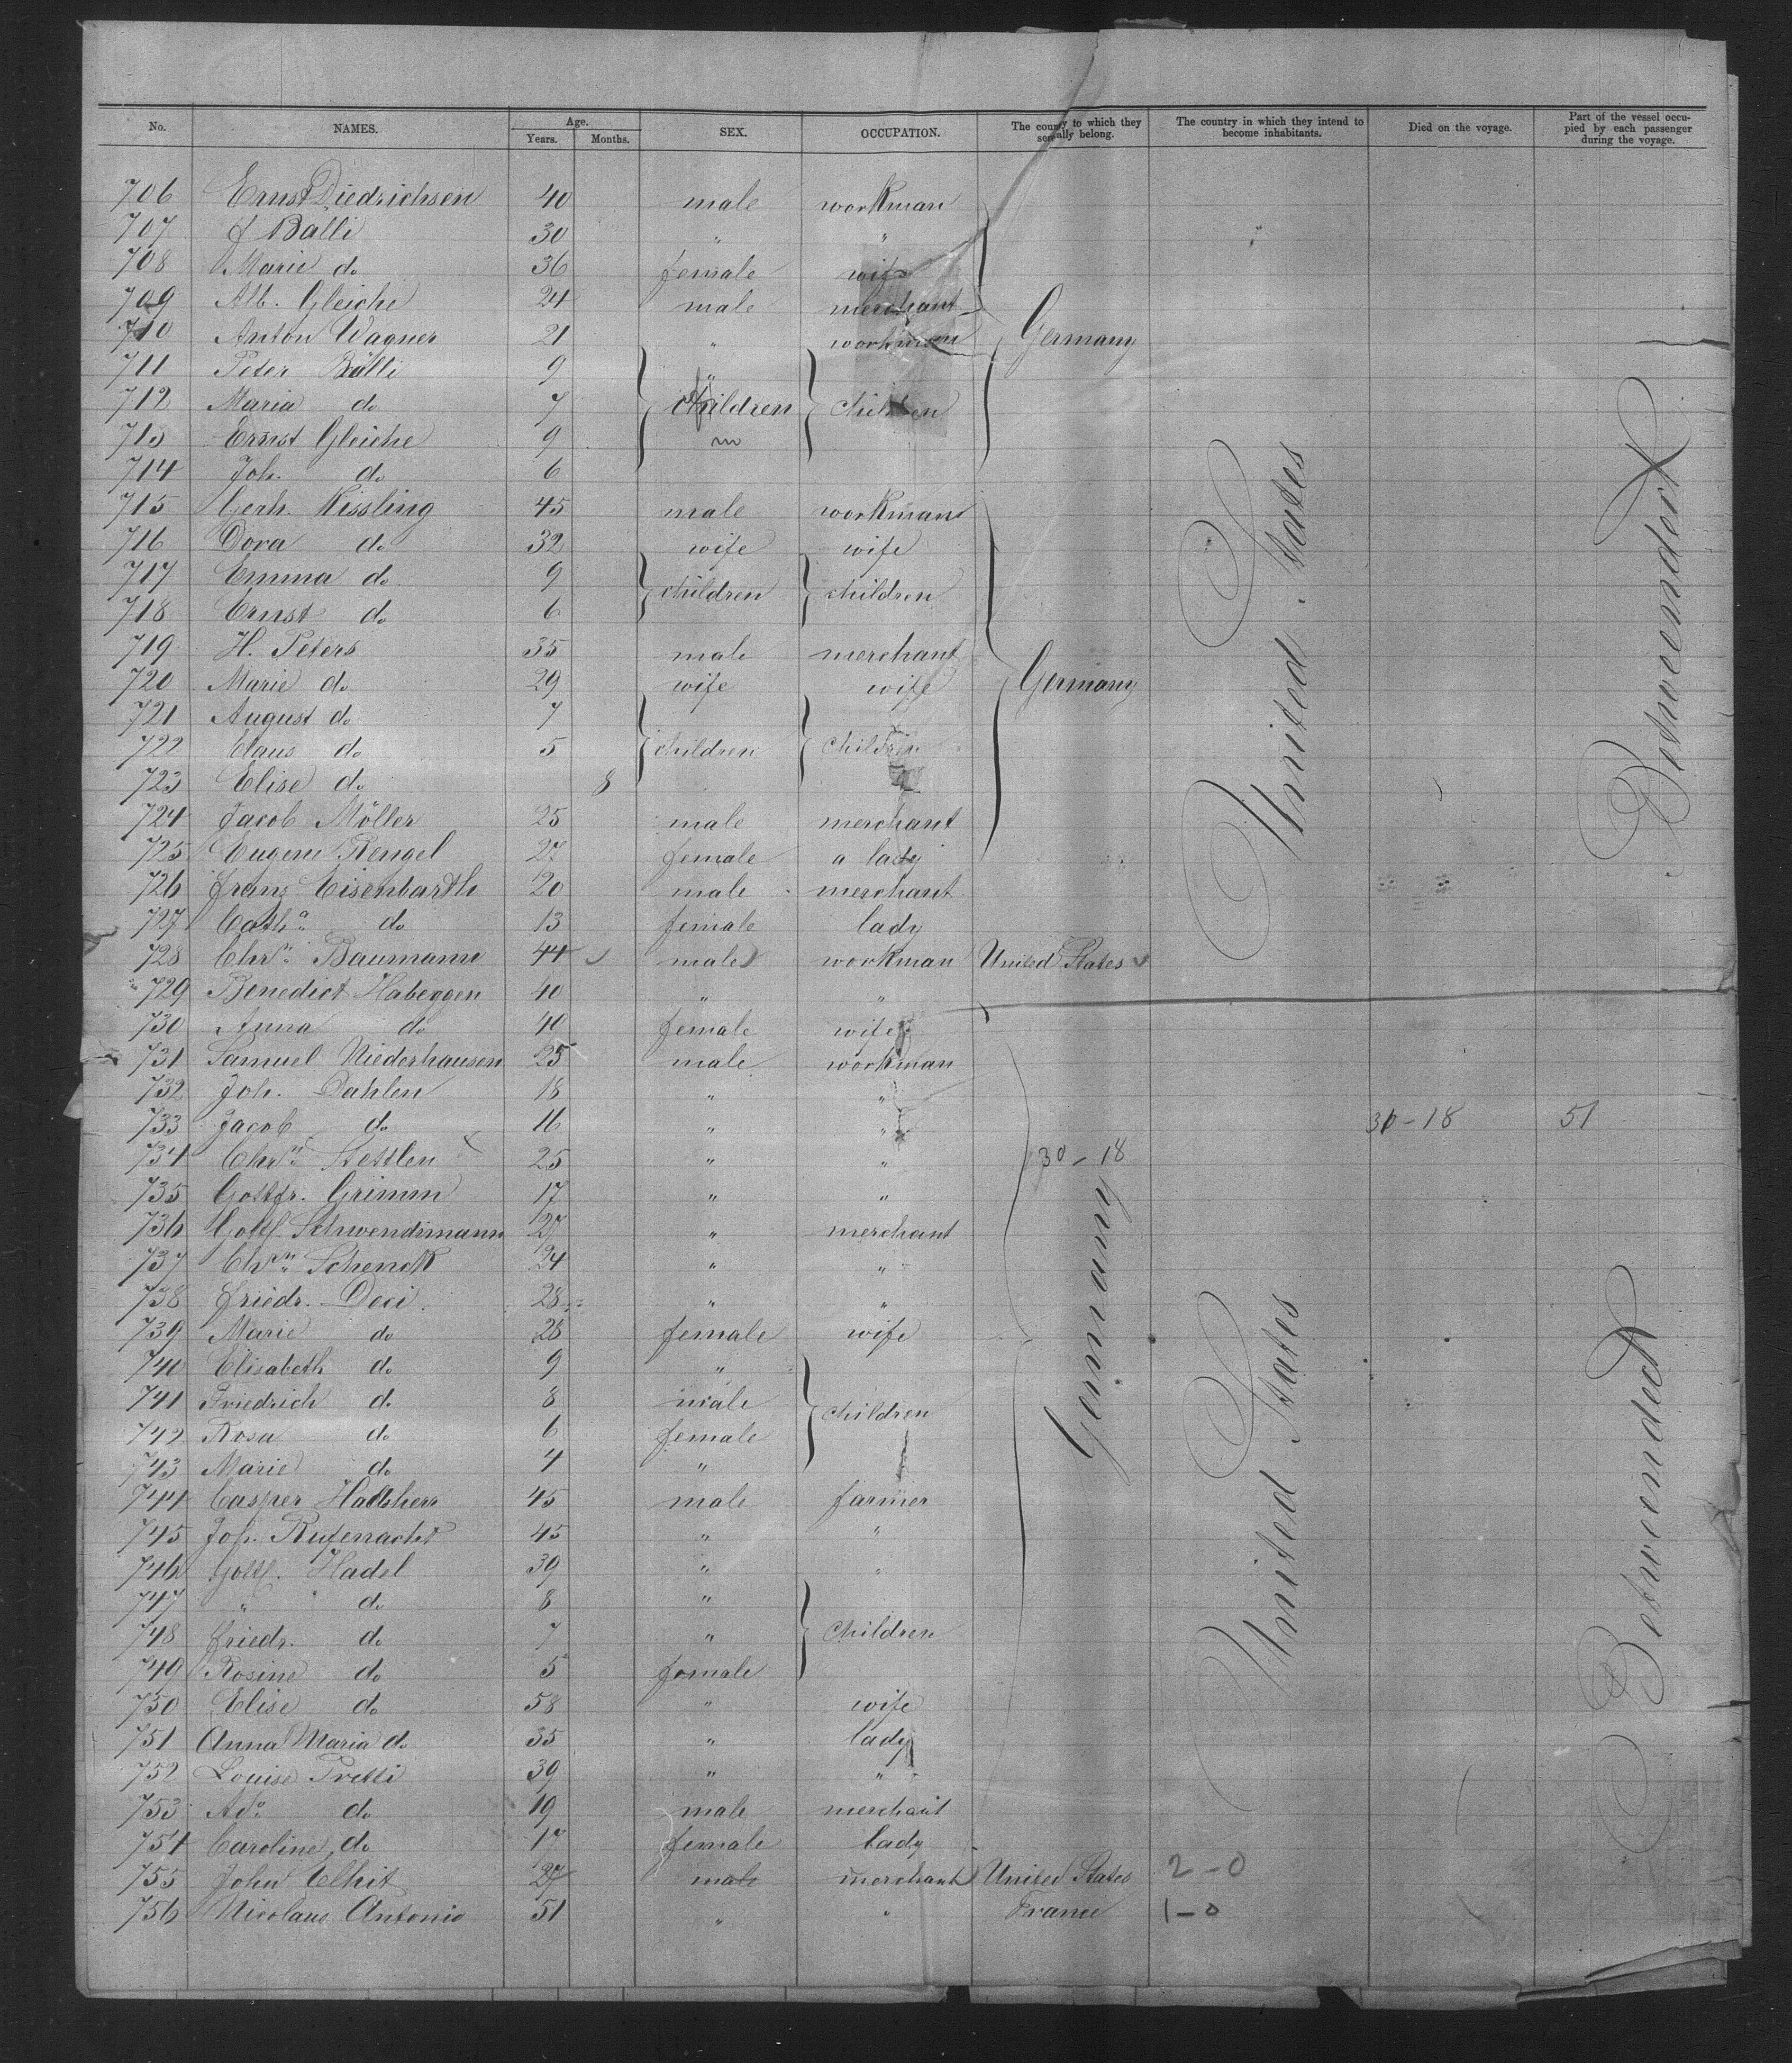 No. NAMES. Age. Years. Months. SEX. OCCUPATION. The country to which they severally belong. The country in which they intend to become inhabitants. Died on the voyage. Part of the vessel occupied by each passenger during the voyage.
706 Ernst Diedrichsen 40 male workman
707 J Balli 30 " "
708 Marie do 36 female wife
709 Alb. Gleiche 24 male merchant
710 Anton Wagner 21 " workman Germany
711 Peter Balli 9 "
712 Maria do 7 children children
713 Ernst Gleiche 9 m
714 Joh. do 6
715 Gerh. Kissling 45 male workman
716 Dora do 32 wife wife
717 Emma do 9 children children
718 Ernst do 6
719 H. Peters 35 male merchant
720 Marie do 29 wife wife Germany
721 August do 7
722 Claus do 5 children children
723 Elise do 8
724 Jacob Möller 25 male merchant
725 Eugene Rengel 27 female a lady
726 Franz Eisenbarth 20 male merchant
727 Catha do 13 female lady
728 Chrn Baumann 44 male workman United States
729 Benedict Habeggen 40 " "
730 Anna do 40 female wife
731 Samuel Niederhausen 25 male workman
732 Joh. Dahlen 18 " "
733 Jacob do 16 " " 30-18 51
734 Chrn Stettlen 25 " " 30-18
735 Gottfr. Grimm 17 " "
736 Gottf. Schwendimann 27 " merchant
737 Chrn Schenck 24 " "
738 Friedr. Deci 28 " "
739 Marie do 28 female wife
740 Elisabeth do 9 "
741 Friedrich do 8 male children
742 Rosa do 6 female
743 Marie do 4 "
744 Casper 45 male farmer
745 Joh. Rufenacht 45 " "
746 Gottl. Hadel 39 " "
747 " do 8 "
748 Friedr. do 7 " Children
749 Rosine do 5 female
750 Elise do 58 " wife
751 Anna Maria do 35 " lady
752 Louise Pretti 39 " "
753 Ado do 19 male merchant
754 Caroline do 17 female lady
755 John Elhit 27 male merchant United States 2-0
756 Nicolaus Antonio 51 " " France 1-0
Germany
United States
United States
Betweendeck
Betweendeck